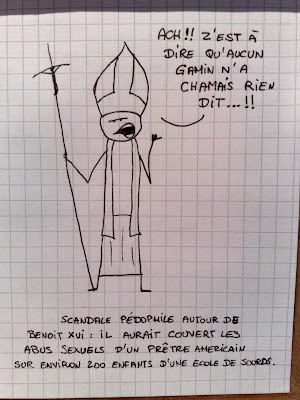 ACH!! Z'EST À
DIRE QU'AUCUN
GAMIN N'A
CHAMAIS RIEN
DIT...!!
SCANDALE PÉDOPHILE AUTOUR DE
BENOIT XVI : IL AURAIT COUVERT LES
ABUS SEXUELS D'UN PRÊTRE AMERICAIN
SUR ENVIRON 200 ENFANTS D'UNE ECOLE DE SOURDS.